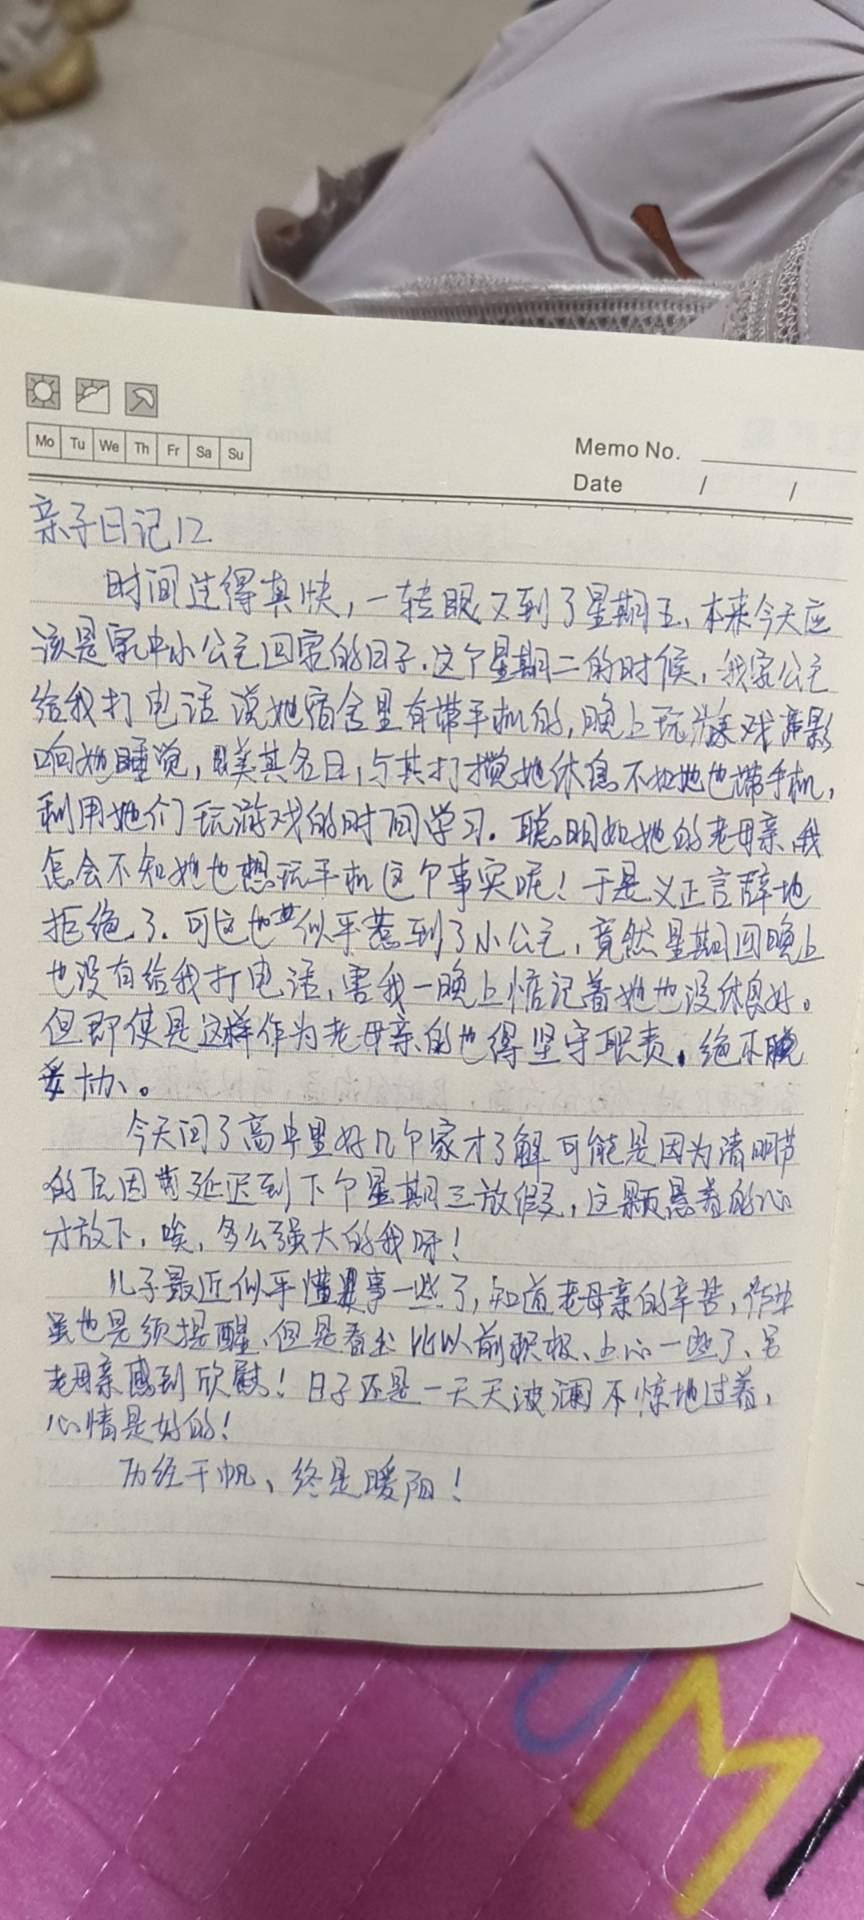 Mo Tu We Th Fr Sa Su
Memo No.
Date / /
亲子日记12
时间过得真快，一转眼又到了星期五，本来今天应
该是家中小公主回家的日子。这个星期二的时候，我家公主
给我打电话说她宿舍里有带手机的，晚上玩游戏声影
响她睡觉，美其名曰，与其打搅她休息不如她也带手机，
利用她们玩游戏的时间学习。聪明如她的老母亲，我
怎会不知她也想玩手机这个事实呢！于是义正言辞地
拒绝了。可这也似乎惹到了小公主，竟然星期四晚上
也没有给我打电话，害我一晚上惦记着她也没休息好。
但即使是这样作为老母亲的也得坚守职责，绝不
妥协。
今天问了高中里好几个家才了解可能是因为清明节
的原因前延迟到下个星期三放假，这颗悬着的心
才放下，唉，多么强大的我呀！
儿子最近似乎懂事一些了，知道老母亲的辛苦，作业
虽也是须提醒，但是看出比以前积极、上心一些了、另
老母亲感到欣慰！日子还是一天天波澜不惊地过着，
心情是好的！
历经千帆、终是暖阳！
M